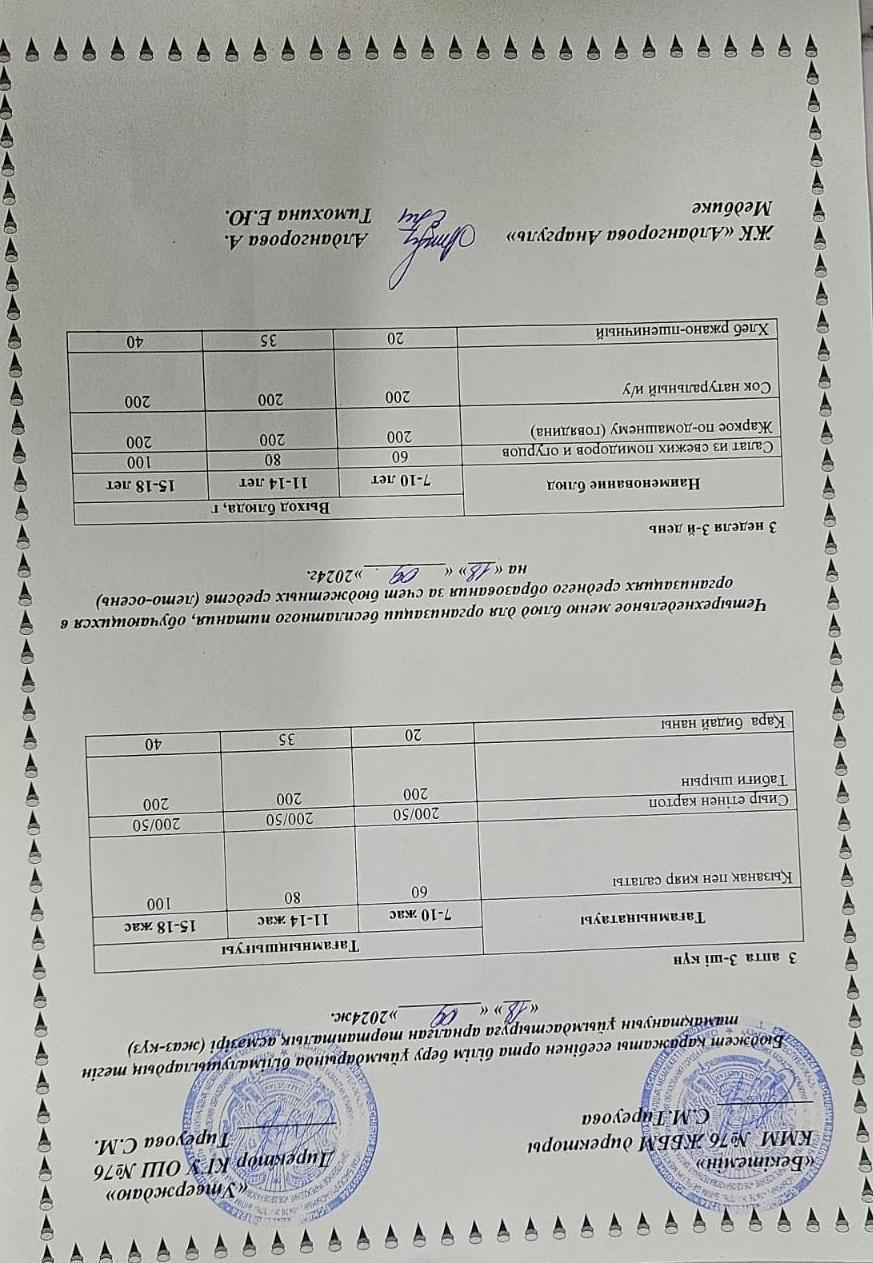 «Бекітемін»
КММ №76 ЖББМ директоры
С.М.Тиреуова
«Утверждаю»
Директор КГУ ОШ №76
Тиреуова С.М.
Бюджет қаражаты есебінен орта білім беру ұйымдарында білімалушылардың тегін
тамақтануын ұйымдастыруға арналған төртапталық асмәзірі (жаз-күз)
«18» «09»2024ж.
3 апта 3-ші күн
Тағамнатауы Тағамныңшығуы
7-10 жас 11-14 жас 15-18 жас
Қызанақ пен қияр салаты 60 80 100
Сиыр етінен картоп 200/50 200/50 200/50
Табиғи шырын 200 200 200
Қара бидай наны 20 35 40
Четырехнедельное меню блюд для организации бесплатного питания, обучающихся в
организациях среднего образования за счет бюджетных средств (лето-осень)
на «18» «09»2024г.
3 неделя 3-й день
Наименование блюд Выход блюда, г
7-10 лет 11-14 лет 15-18 лет
Салат из свежих помидоров и огурцов 60 80 100
Жаркое по-домашнему (говядина) 200 200 200
Сок натуральный и/у 200 200 200
Хлеб ржано-пшеничный 20 35 40
ЖК «Алдангорова Анаргуль» Алдангорова А.
Медбике Тимохина Е.Ю.